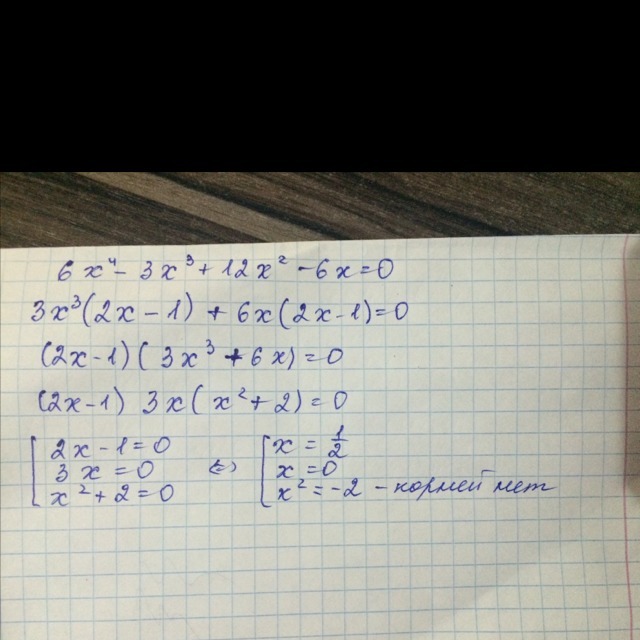 6x⁴ - 3x³ + 12x² - 6x = 0
3x³(2x - 1) + 6x(2x - 1) = 0
(2x - 1)(3x³ + 6x) = 0
(2x - 1) 3x(x² + 2) = 0
[ 2x - 1 = 0 ⇔ [ x = 1/2
3x = 0 x = 0
x² + 2 = 0 x² = -2 - корней нет